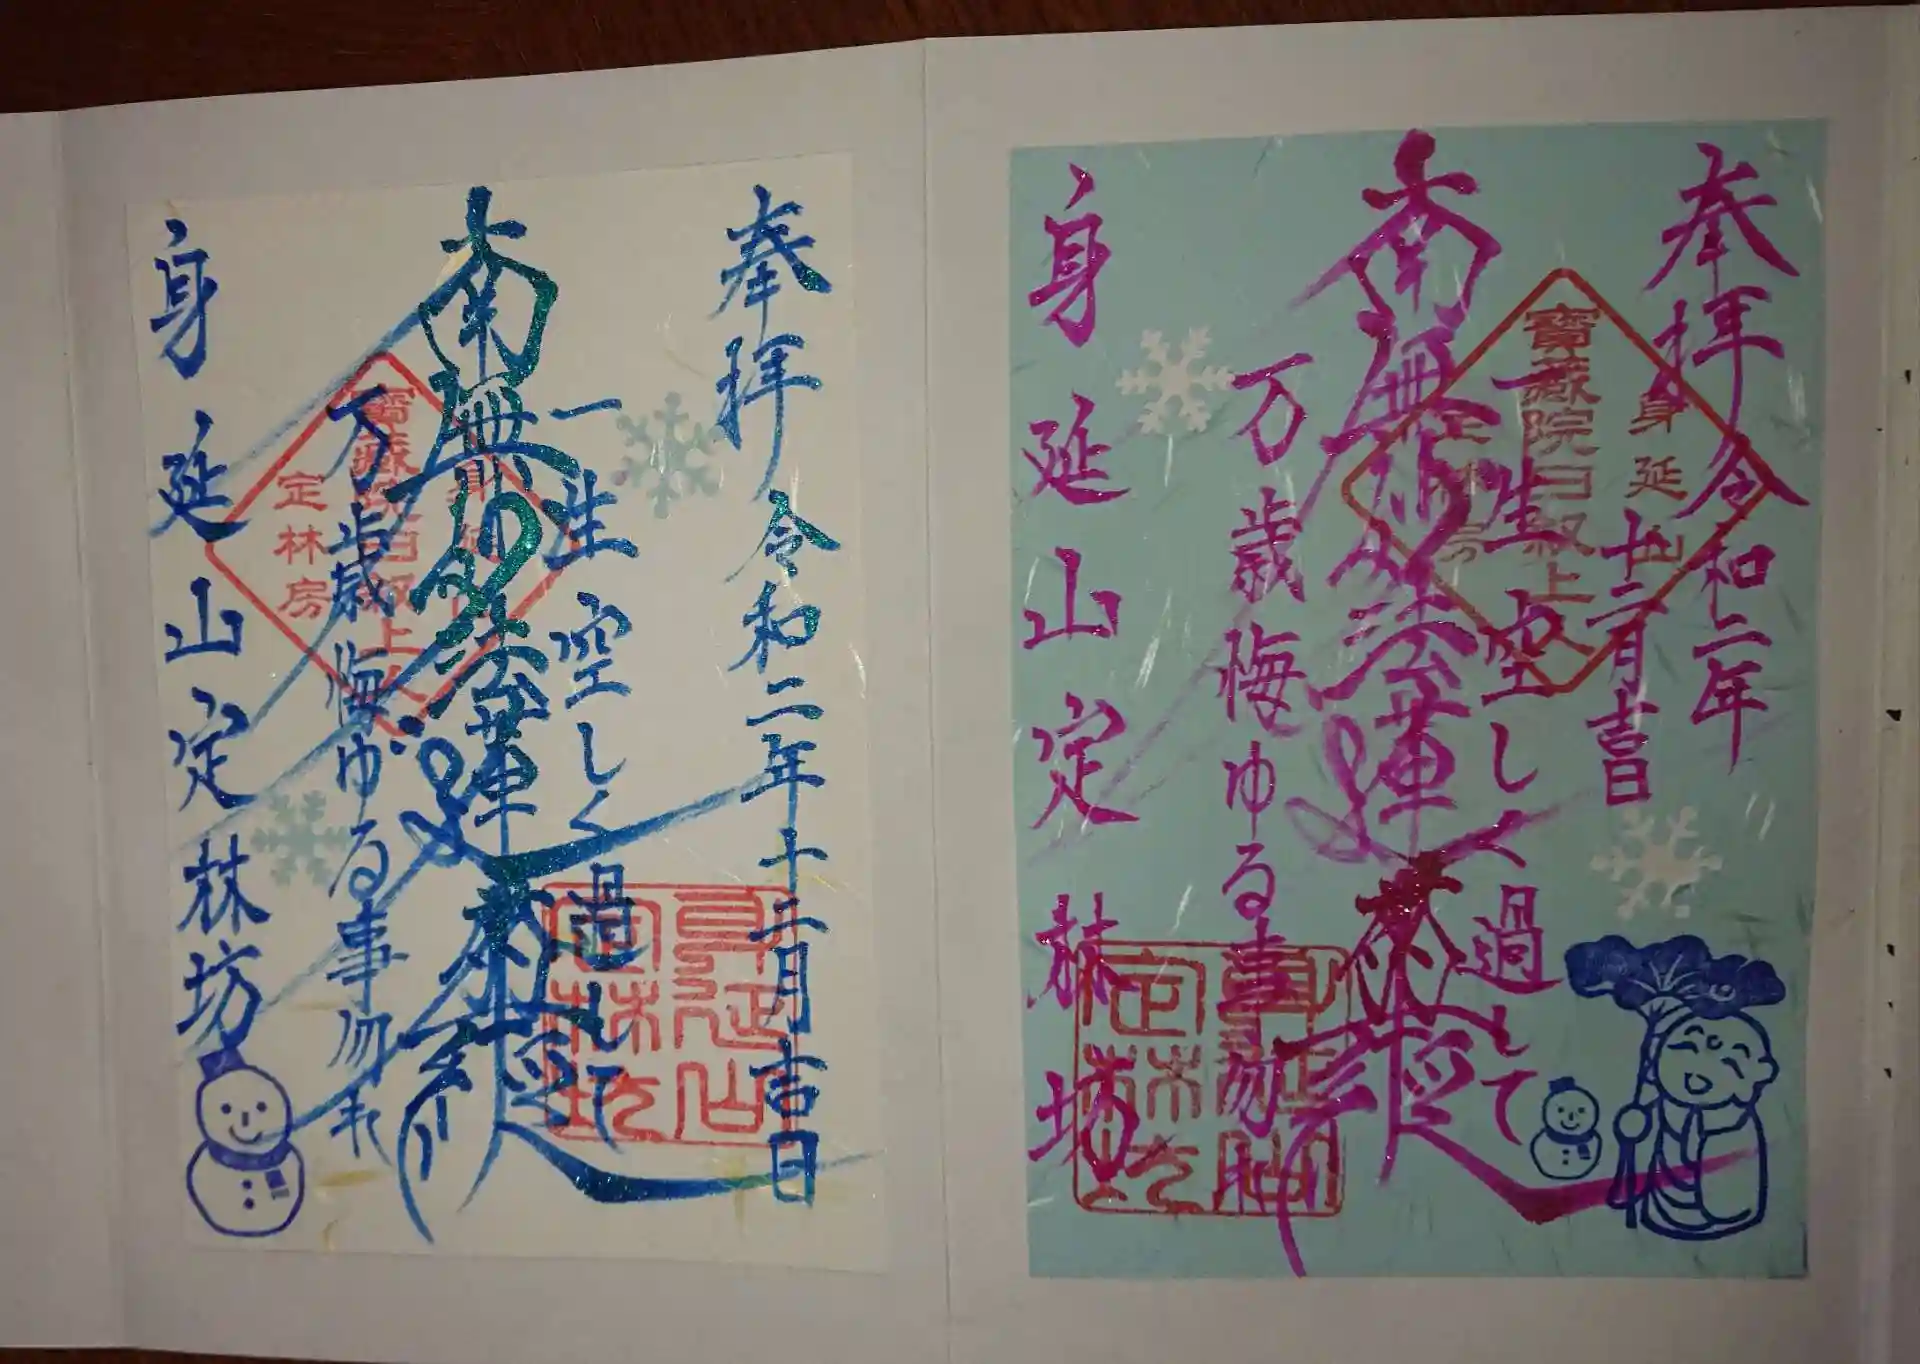 奉拝 令和二年
十二月吉日
一生空しく過して
南無妙法蓮華經
万歳悔ゆる事勿れ
身延山定林坊
身延山
寶蔵院日叙上人
定林房
身延山
定林坊
奉拝 令和二年十二月吉日
一生空しく過して
南無妙法蓮華經
万歳悔ゆる事勿れ
身延山定林坊
身延山
寶蔵院日叙上人
定林房
身延山
定林坊